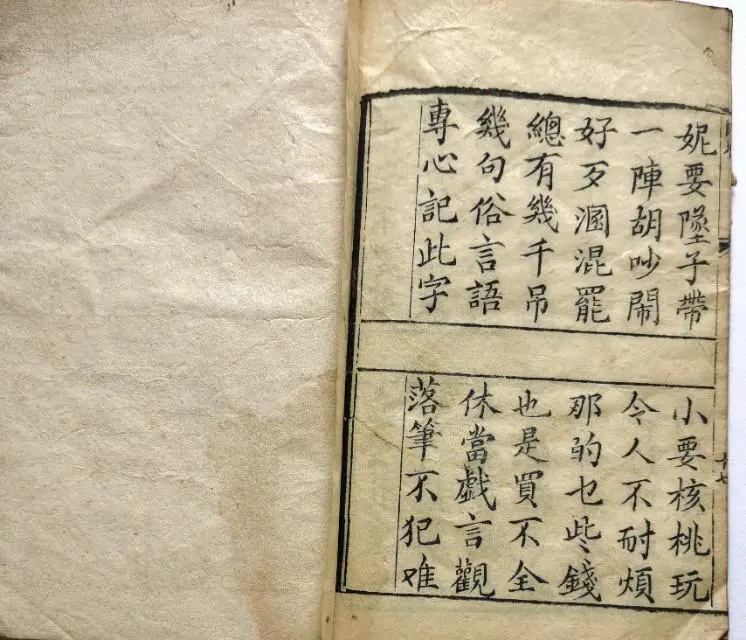 妮要墜子帶
小要核桃玩
一陣胡吵鬧
令人不耐煩
好歹溷混罷
那的乜些錢
總有幾千吊
也是買不全
幾句俗言語
休當戲言觀
專心記此字
落筆不犯难
十七